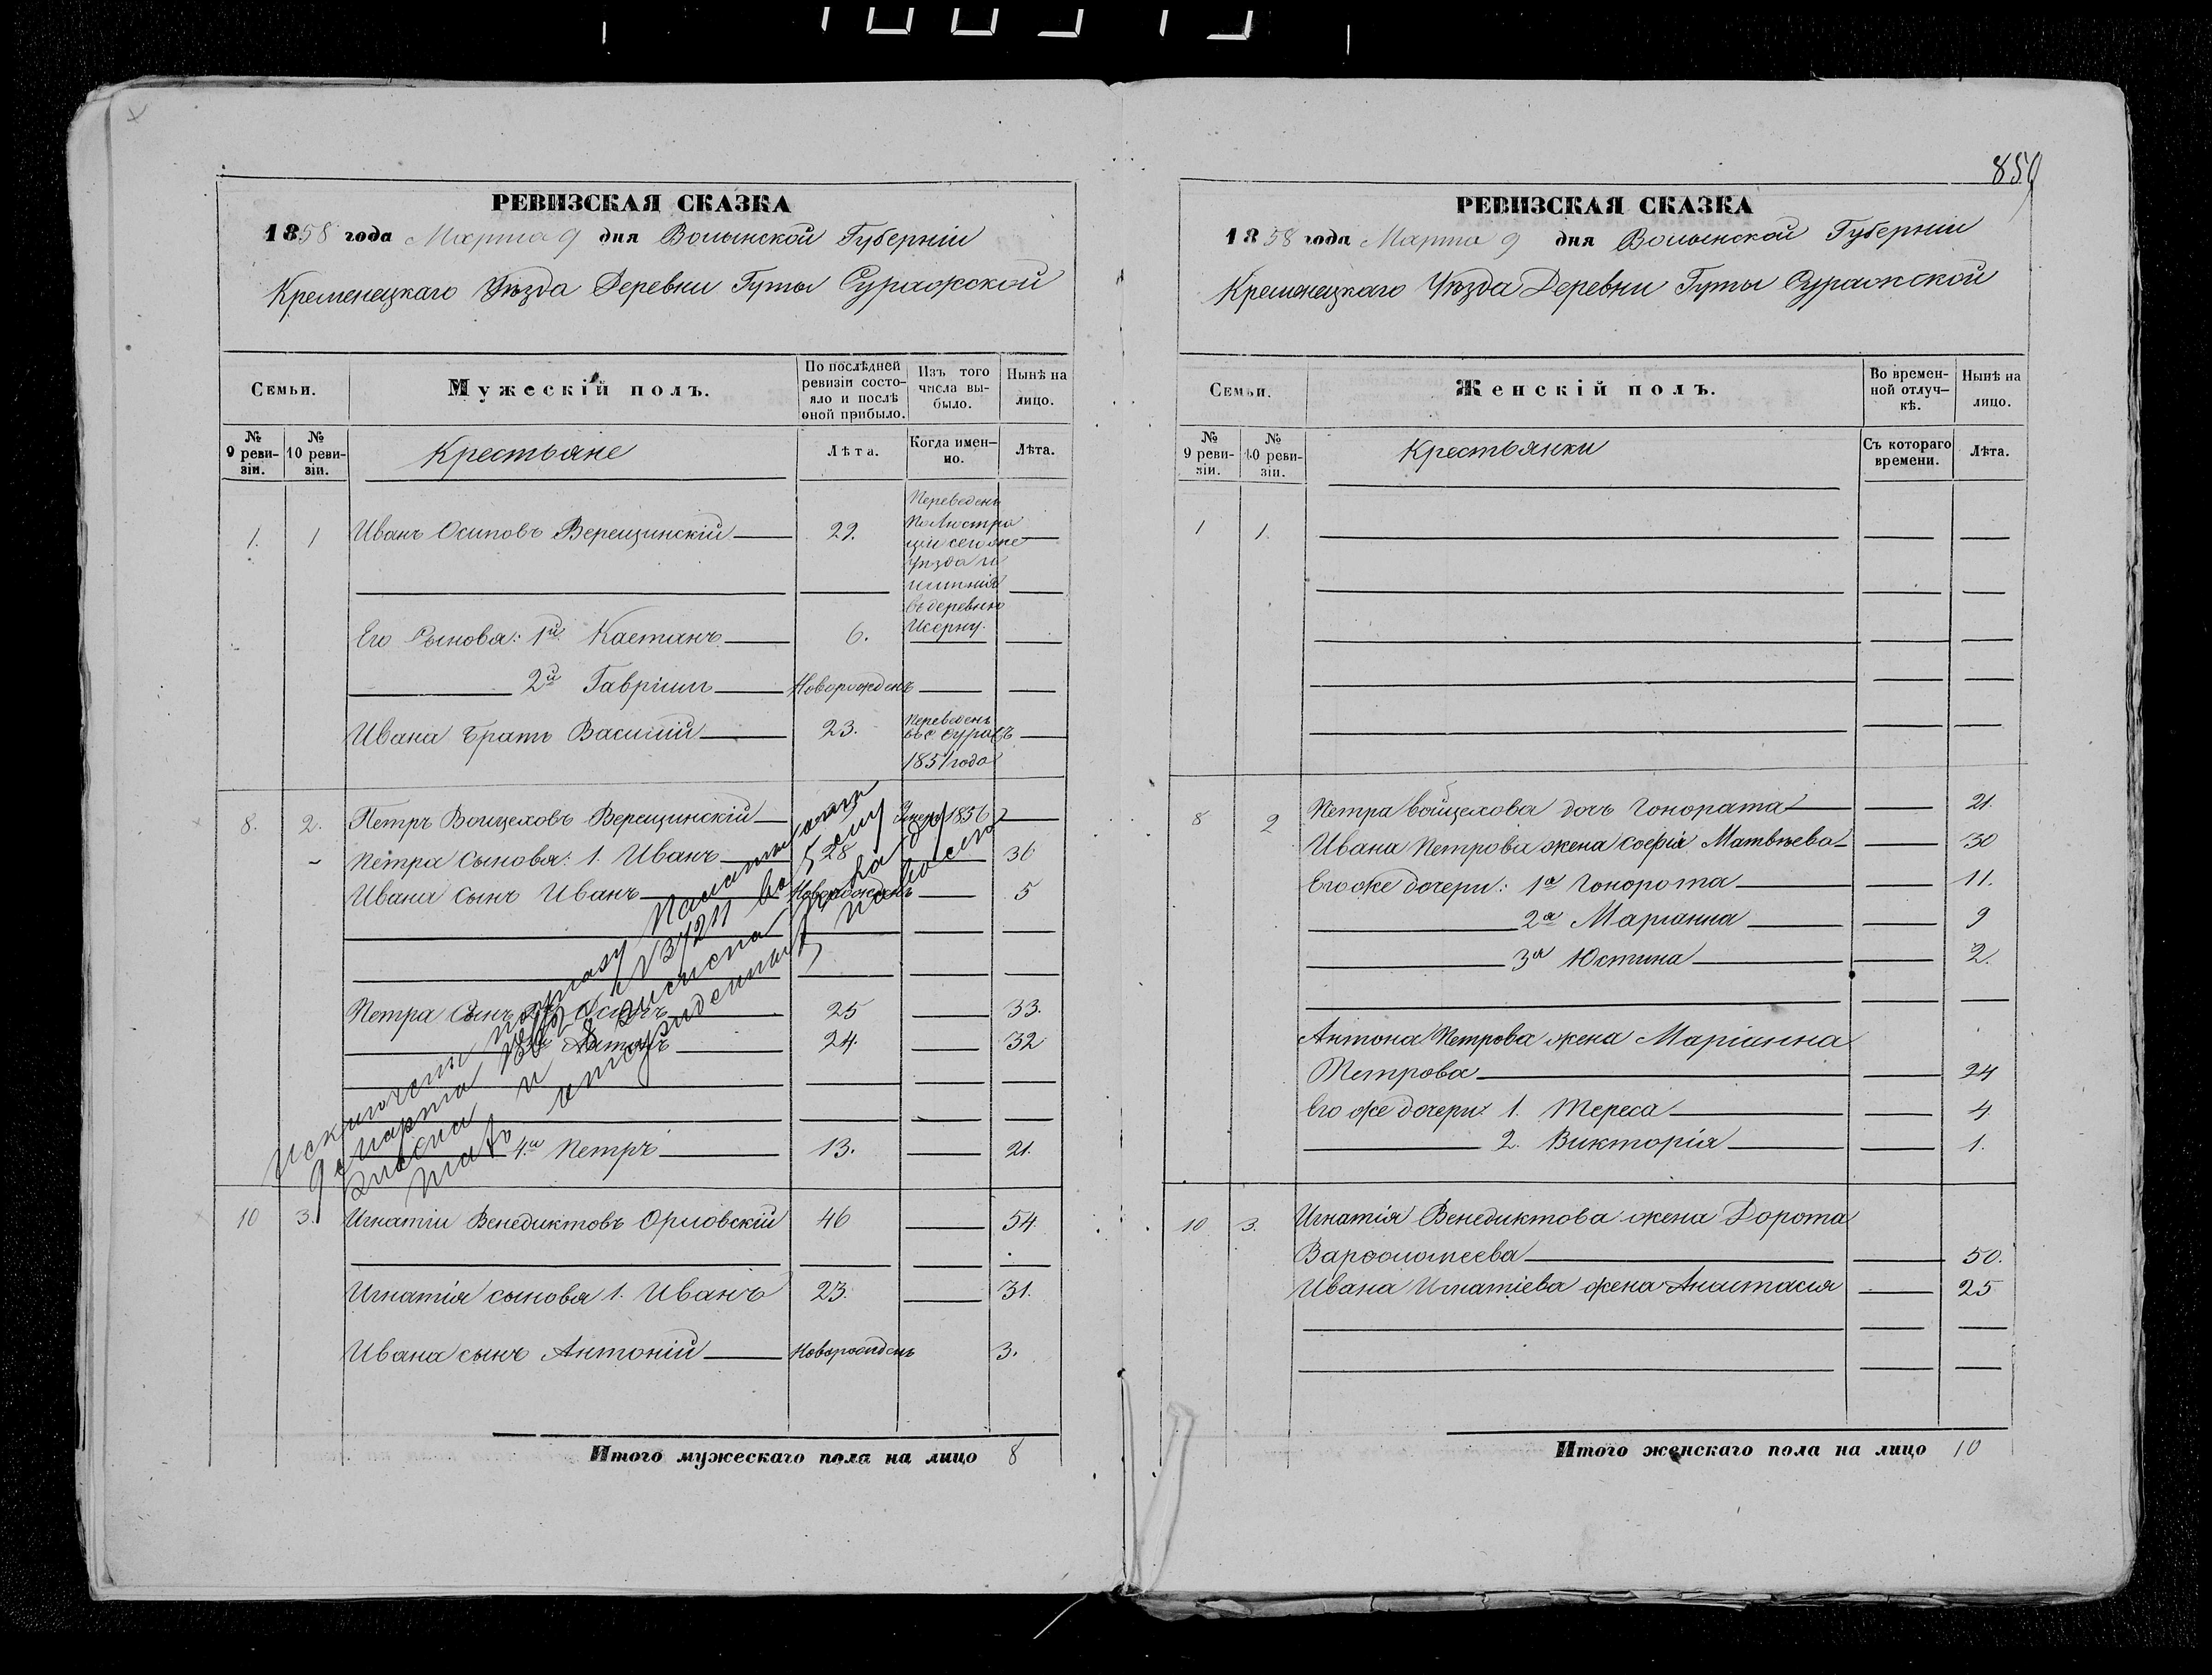 859
РЕВИЗСКАЯ СКАЗКА
1858 года Марта 9 дня Волынской Губерніи
Кременецкаго Уѣзда Деревни Гуты Суражской
Семьи.
Мужескій полъ.
По послѣдней ревизіи состо-
яло и послѣ оной прибыло.
Изъ того числа вы-
было.
Нынѣ на лицо.
№ 9 реви-
зіи.
№ 10 реви-
зіи.
Крестьяне
Лѣта.
Когда имен-
но.
Лѣта.
1. 1 Иванъ Осиповъ Верещинскій 29.
Переведенъ
по Люстра
ціи сегоже
уѣзда и
имѣнія
въ деревню
Его Сыновья: 1й Каетанъ 6.
2й Гавріилъ Новорожденъ
Ивана братъ Василій 23.
Переведенъ
1851 года
8. 2. Петръ Войцеховъ Верещинскій 1856
Петра сыновья: 1. Иванъ 28 36
Ивана сынъ Иванъ Новорожденъ 5
Петра Сынъ Осипъ 25 33.
Антонъ 24. 32
4й Петръ 13. 21.
10 3. Игнатій Венедиктовъ Орловскій 46 54
Игнатія сыновья 1. Иванъ 23. 31.
Ивана сынъ Антоній Новорожденъ 3.
Исключены по указу Палаты
Марта
Итого мужескаго пола на лицо 8
РЕВИЗСКАЯ СКАЗКА
1858 года Марта 9 дня Волынской Губерніи
Кременецкаго Уѣзда Деревни Гуты Суражской
Семьи.
Женскій полъ.
Во времен-
ной отлуч-
кѣ.
Нынѣ на лицо.
№ 9 реви-
зіи.
№ 10 реви-
зіи.
Крестьянки
Съ котораго времени.
Лѣта.
1 1.
8 2 Петра Войцехова дочь Гонората 21.
Ивана Петрова жена Софія Матвѣева 30
Его же дочери: 1я Гонорота 11.
2я Маріанна 9
3я Юстина 2.
Антона Петрова жена Маріанна
Петрова 24
Его же дочери: 1. Тереса 4
2. Викторія 1.
10 3. Игнатія Венедиктова жена Дорота
Варфоломеева 50.
Ивана Игнатіева жена Анастасія 25
Итого женскаго пола на лицо 10